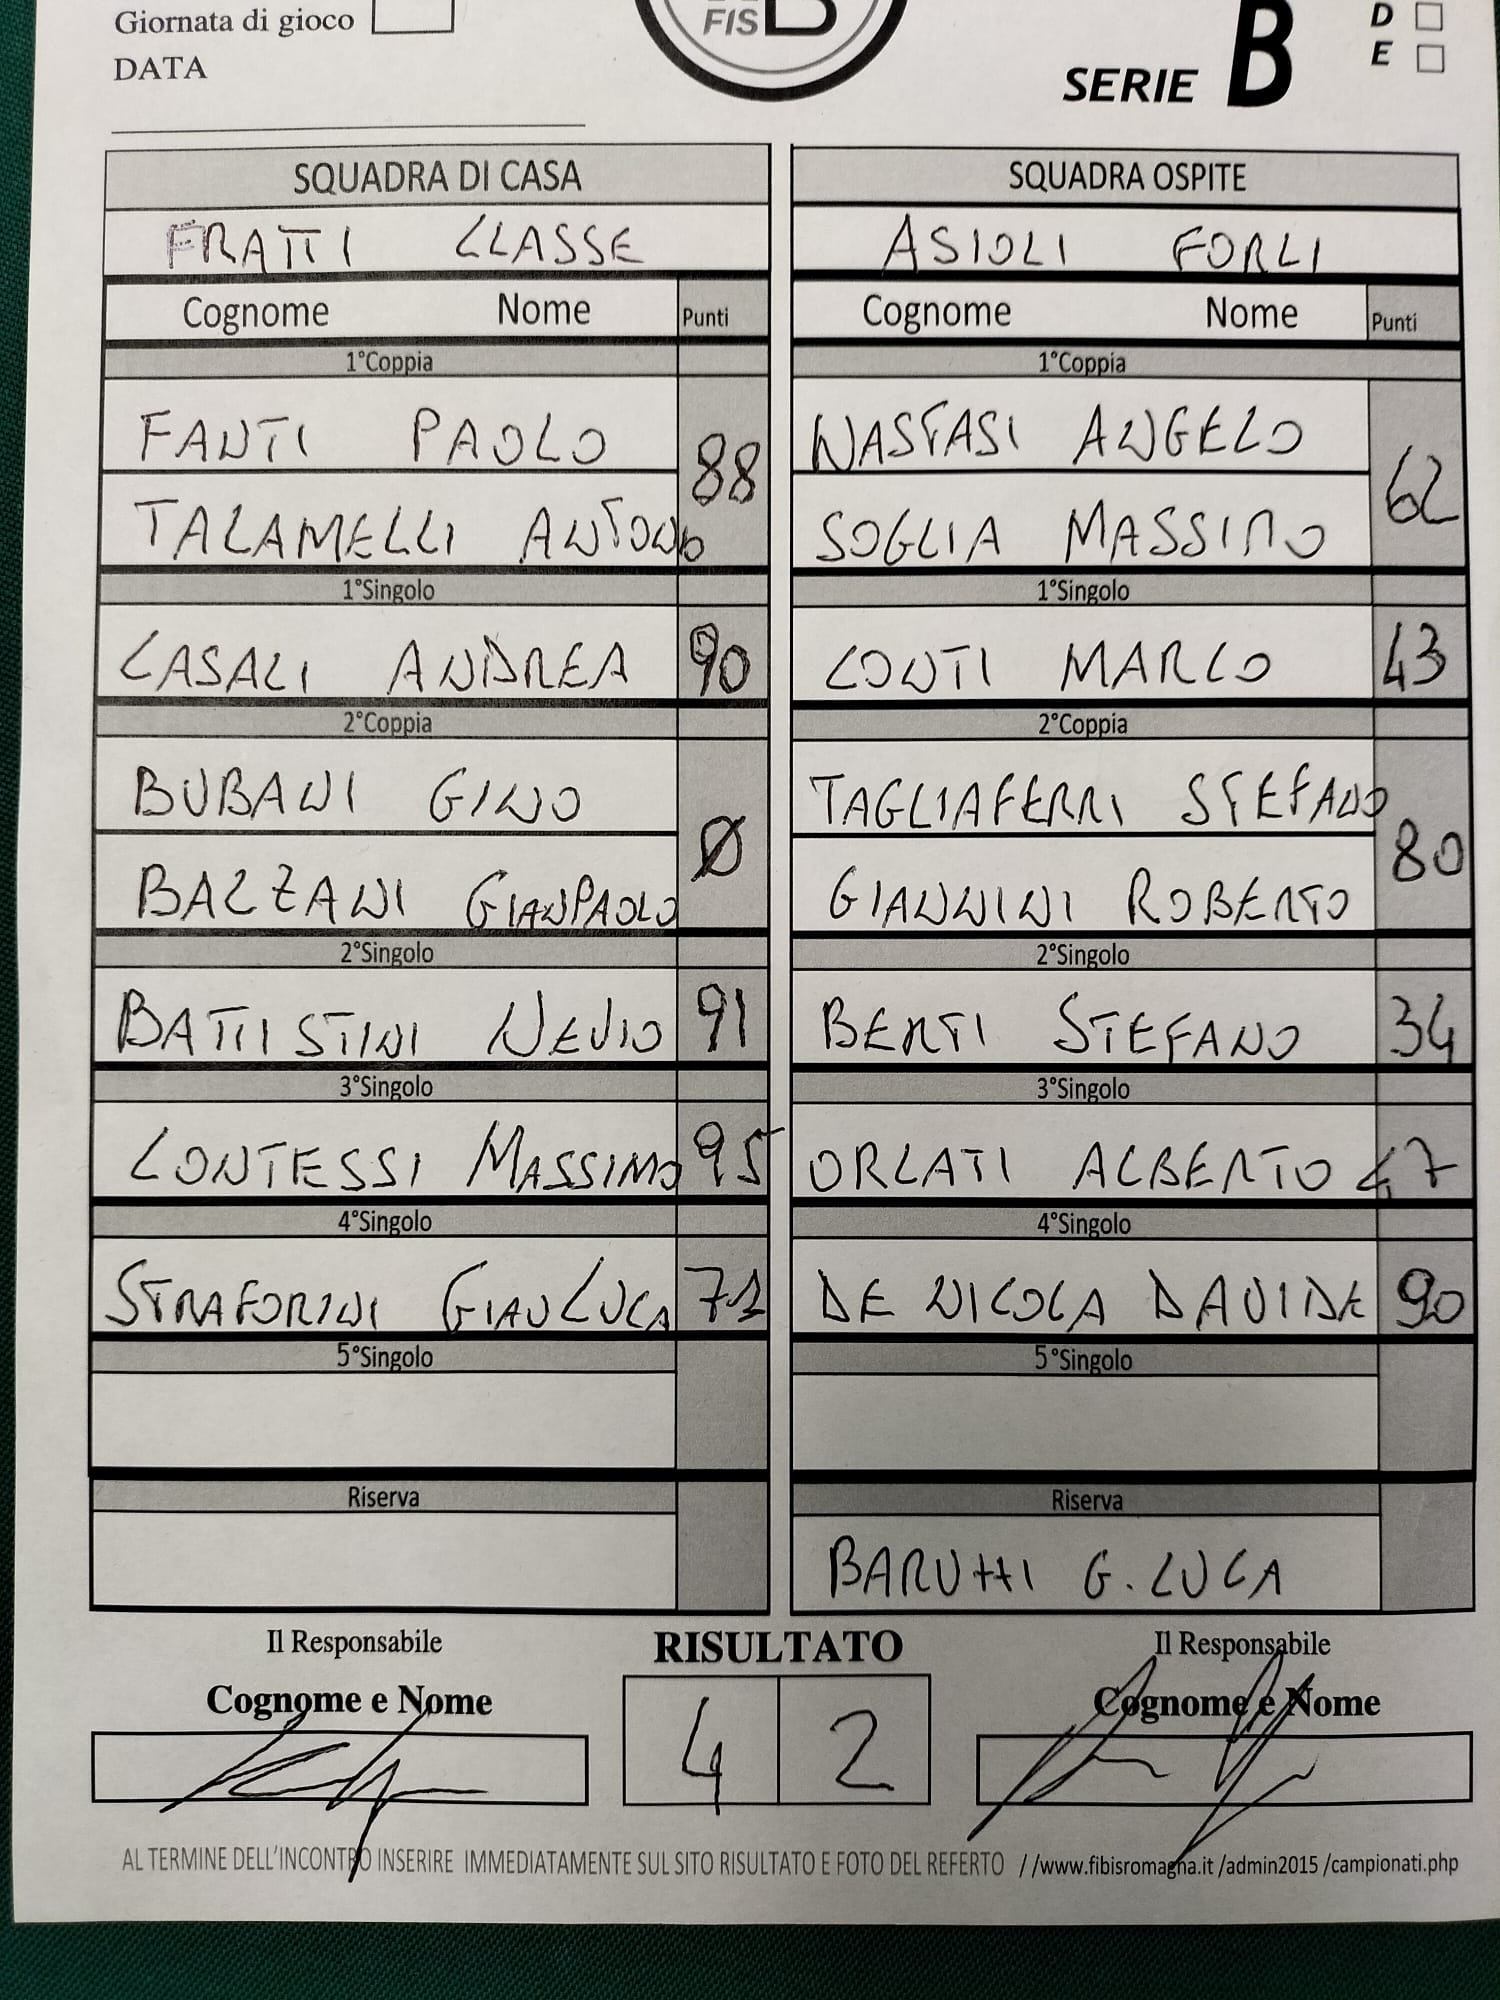 Giornata di gioco
DATA
FIS B
SERIE B
D
E
SQUADRA DI CASA
FRATTI CLASSE
Cognome Nome Punti
1°Coppia
FANTI PAOLO
88
TALAMELLI ANTONIO
1°Singolo
CASALI ANDREA 90
2°Coppia
BUBANI GINO
Ø
BALZANI GIANPAOLO
2°Singolo
BATTISTINI NEVIO 91
3°Singolo
CONTESSI MASSIMO 95
4°Singolo
STRAFORINI GIANLUCA 71
5°Singolo
Riserva
SQUADRA OSPITE
ASIOLI FORLI
Cognome Nome Punti
1°Coppia
NASTASI ANGELO
62
SOGLIA MASSIMO
1°Singolo
CONTI MARCO 43
2°Coppia
TAGLIAFERRI STEFANO
80
GIANNINI ROBERTO
2°Singolo
BERTI STEFANO 34
3°Singolo
ORLATI ALBERTO 47
4°Singolo
DE NICOLA DAVIDE 90
5°Singolo
Riserva
BARUTTI G. LUCA
Il Responsabile RISULTATO Il Responsabile
Cognome e Nome Cognome e Nome
4 2
AL TERMINE DELL'INCONTRO INSERIRE IMMEDIATAMENTE SUL SITO RISULTATO E FOTO DEL REFERTO //www.fibisromagna.it /admin2015 /campionati.php